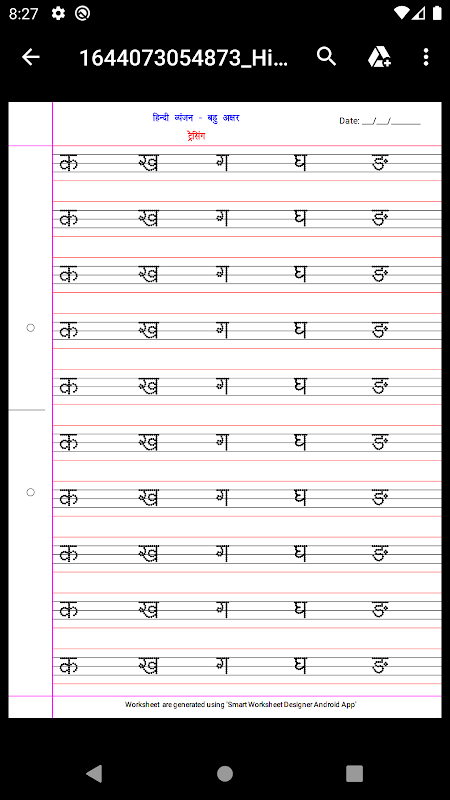 8:27
1644073054873_Hi...
हिन्दी व्यंजन - बहु अक्षर
Date: __/__/_____
ट्रेसिंग
क ख ग घ ङ
क ख ग घ ङ
क ख ग घ ङ
क ख ग घ ङ
क ख ग घ ङ
क ख ग घ ङ
क ख ग घ ङ
क ख ग घ ङ
क ख ग घ ङ
क ख ग घ ङ
Worksheet are generated using 'Smart Worksheet Designer Android App'